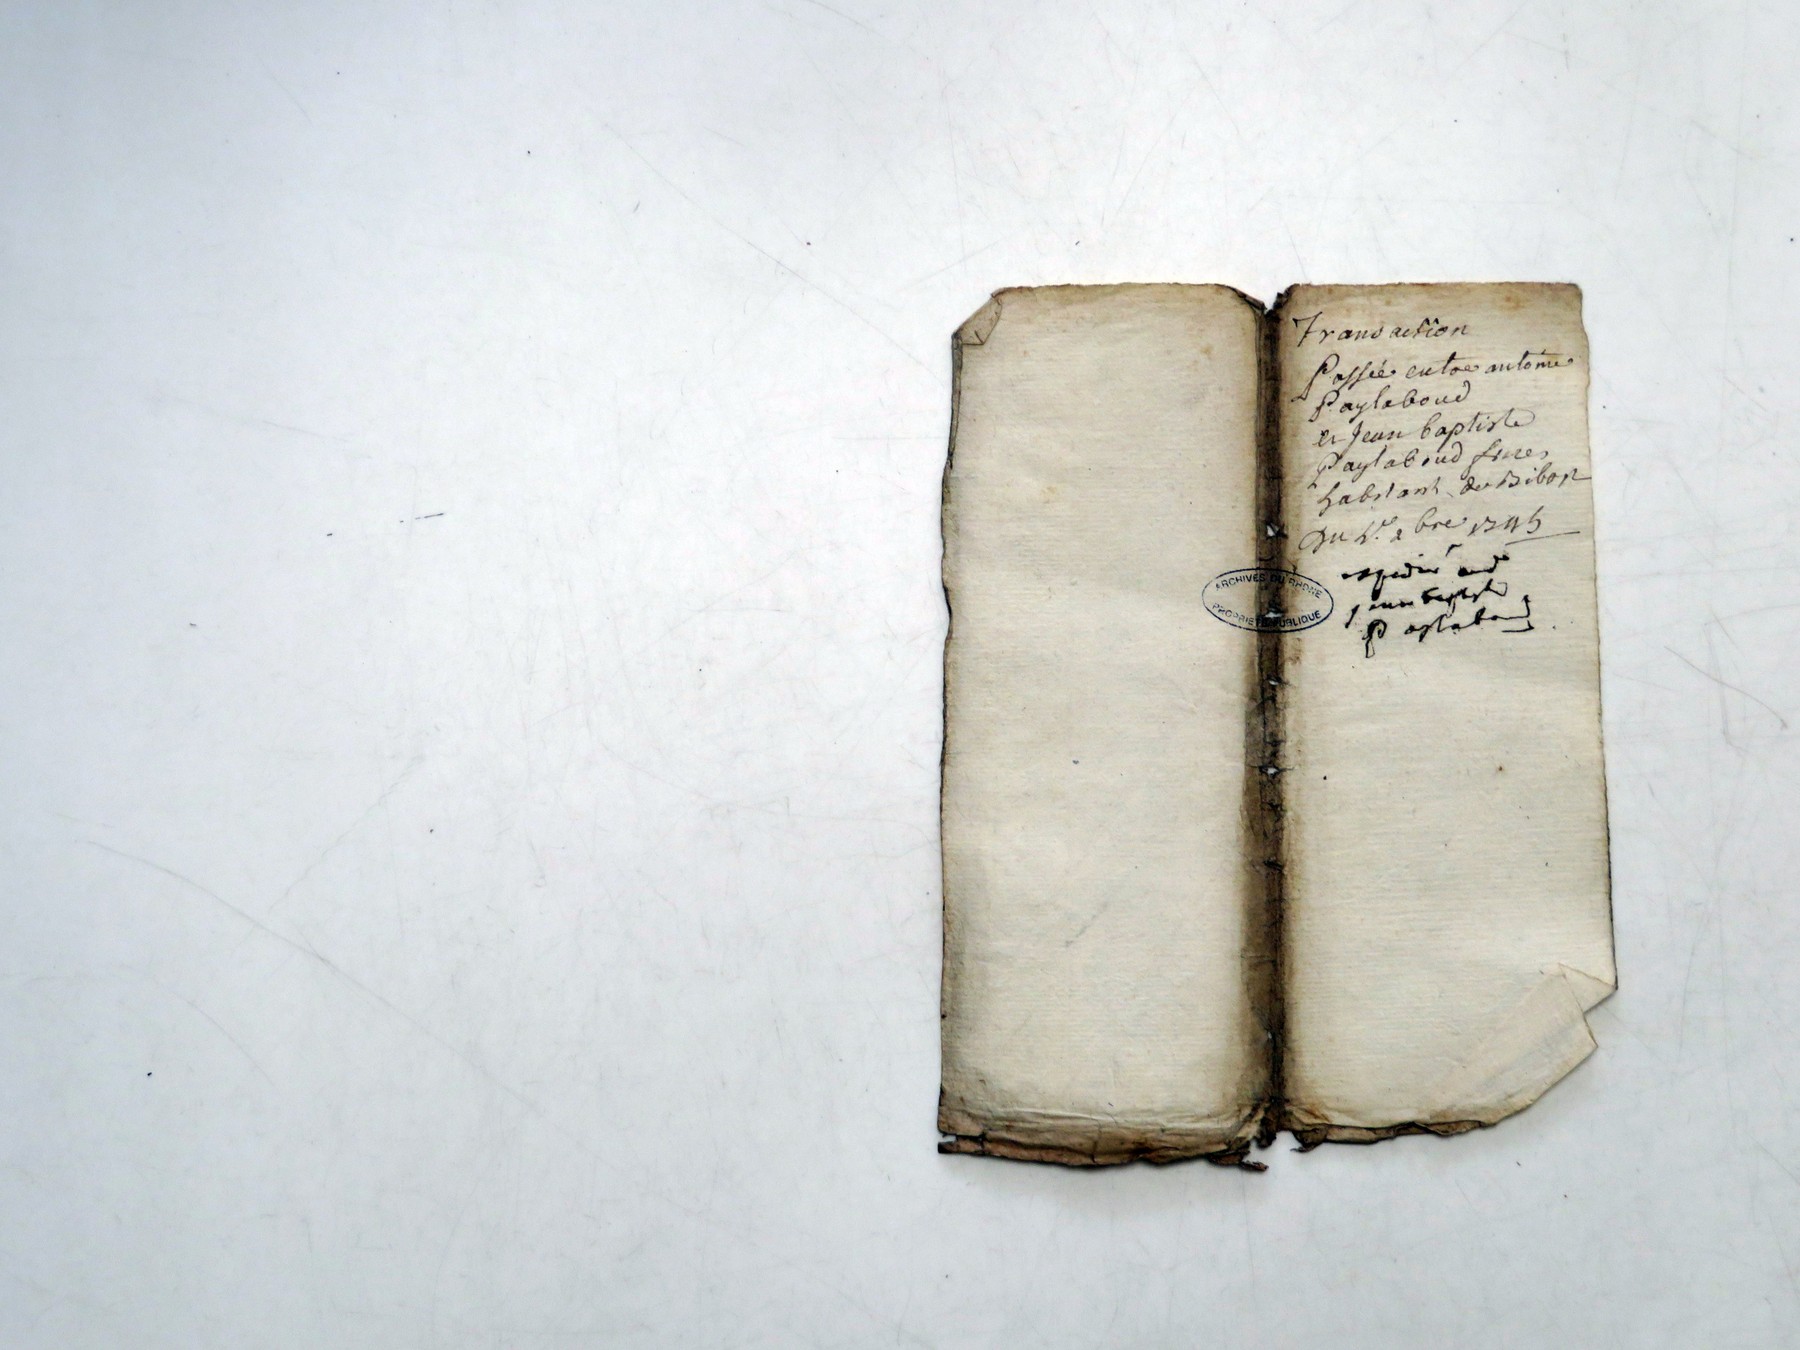 Transaction
Passée entre antoine
Paylaboud
et Jean baptiste
Paylaboud freres
habitant
Du bre
expedié aud
jean baptiste
Paylaboud
ARCHIVES DU RHONE
PROPRIETE PUBLIQUE